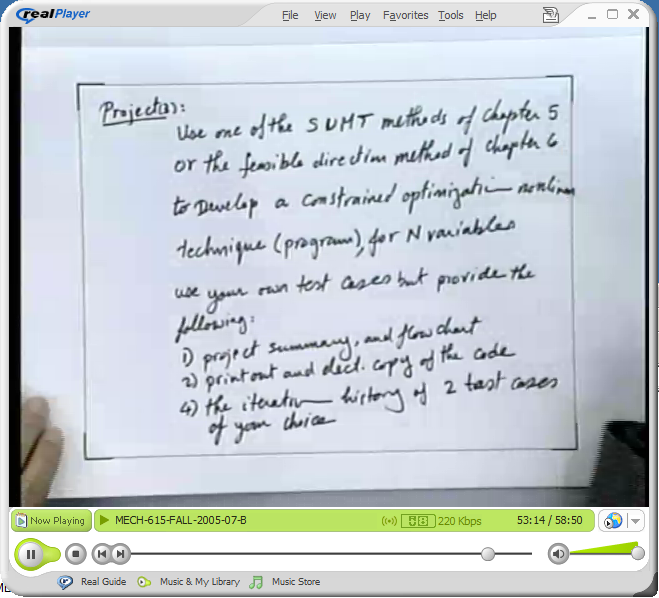 realPlayer
File View Play Favorites Tools Help
Project(3):
Use one of the SUMT methods of chapter 5
or the feasible direction method of chapter 6
to Develop a constrained optimization nonlinear
technique (program), for N variables
use your own test cases but provide the
following:
1) project summary, and flow chart
2) print out and elect. copy of the code
4) the iteration history of 2 test cases
of your choice
Now Playing MECH-615-FALL-2005-07-B 220 Kbps 53:14 / 58:50
Real Guide Music & My Library Music Store